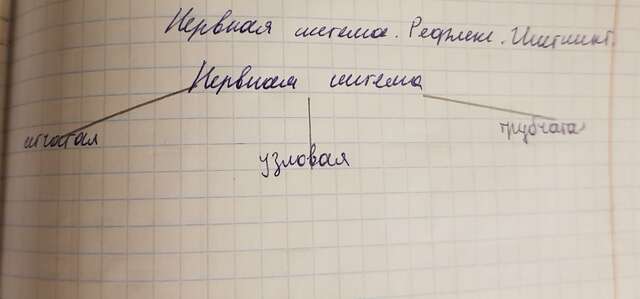 Нервная система. Рефлекс. Инстинкт.
Нервная система
сетчатая
узловая
трубчатая